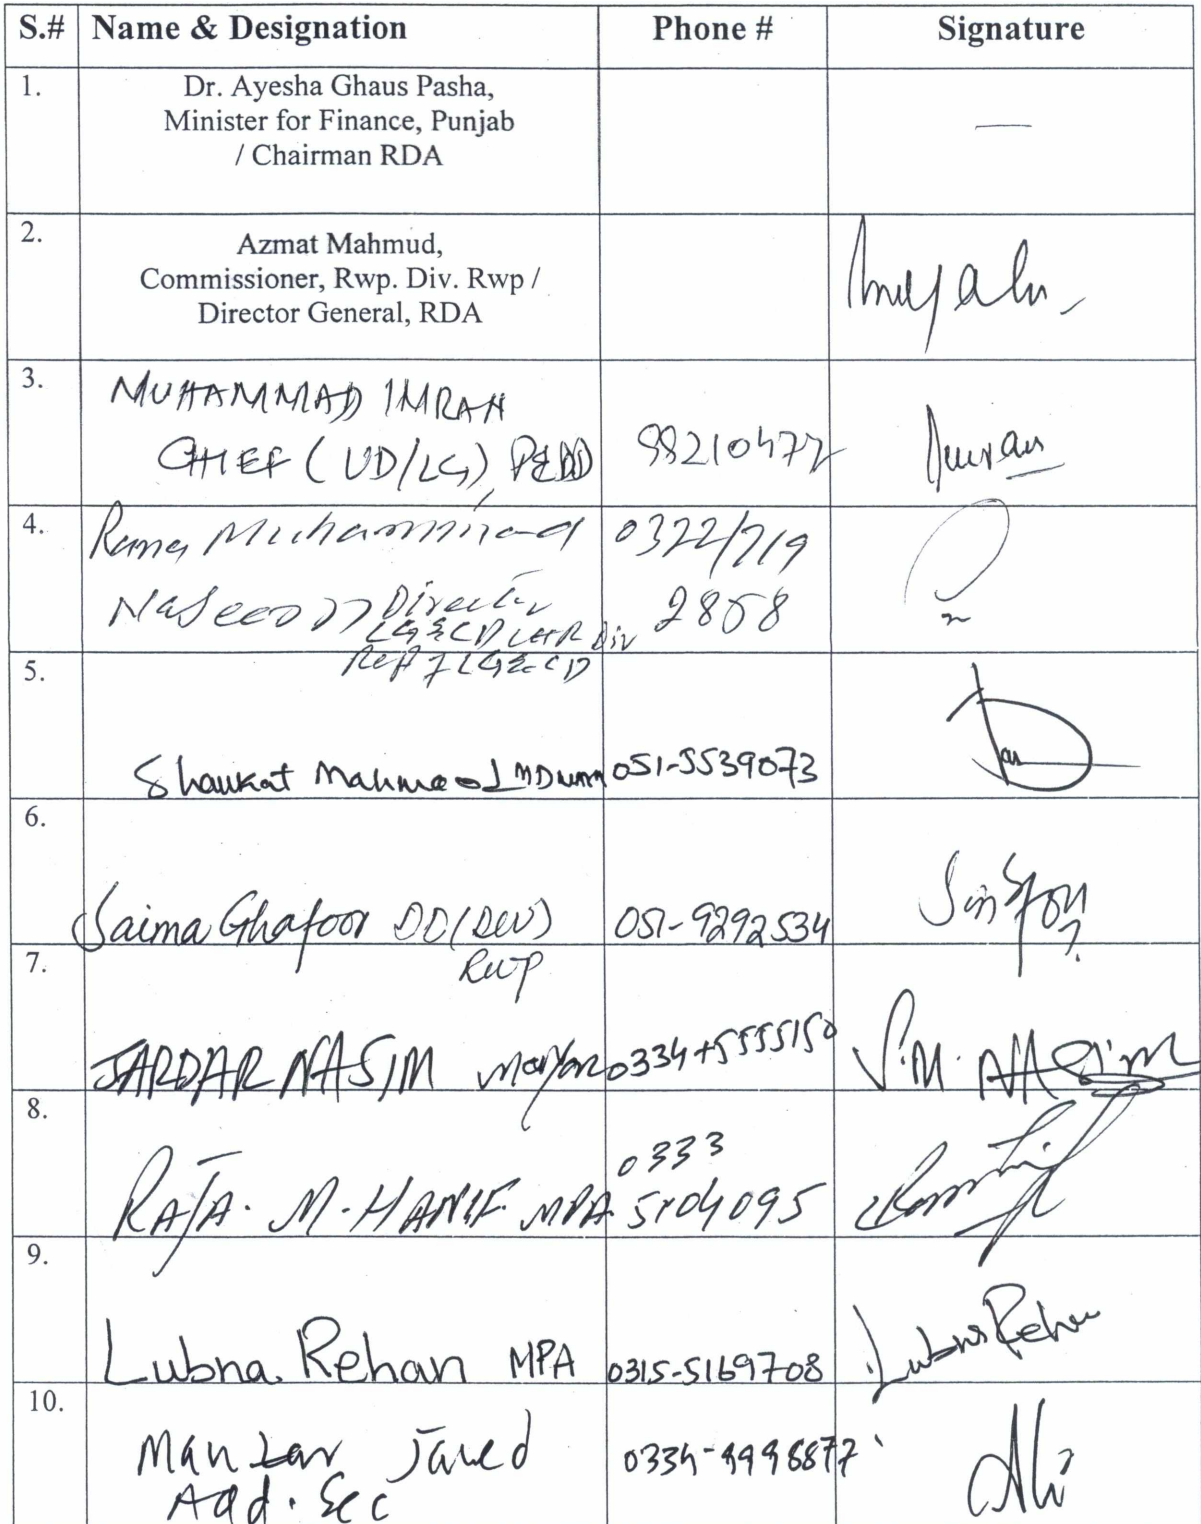 S.# Name & Designation Phone # Signature
1. Dr. Ayesha Ghaus Pasha,
Minister for Finance, Punjab
/ Chairman RDA
—
2. Azmat Mahmud,
Commissioner, Rwp. Div. Rwp /
Director General, RDA
3. MUHAMMAD IMRAN
CHIEF (UD/LG), P&DD 99210477 Imran
4. Rana Muhammad 0322/719
Naseem Director 2858
LG&CD LHR Div
Rep of LG&CD
5.
Shaukat Mahmood MD WASA 051-5539073
6.
Saima Ghafoor DD (DEV) 051-9292534
Rwp
7.
SARDAR NASIM Mayor 0334+5555150 S.M. NAsim
8.
0333
RAJA. M. HANIF MPA. 5104095
9.
Lubna. Rehan MPA 0315-5169708 Lubna Rehan
10.
Manzar Javed 0334-9998877
Add. Sec